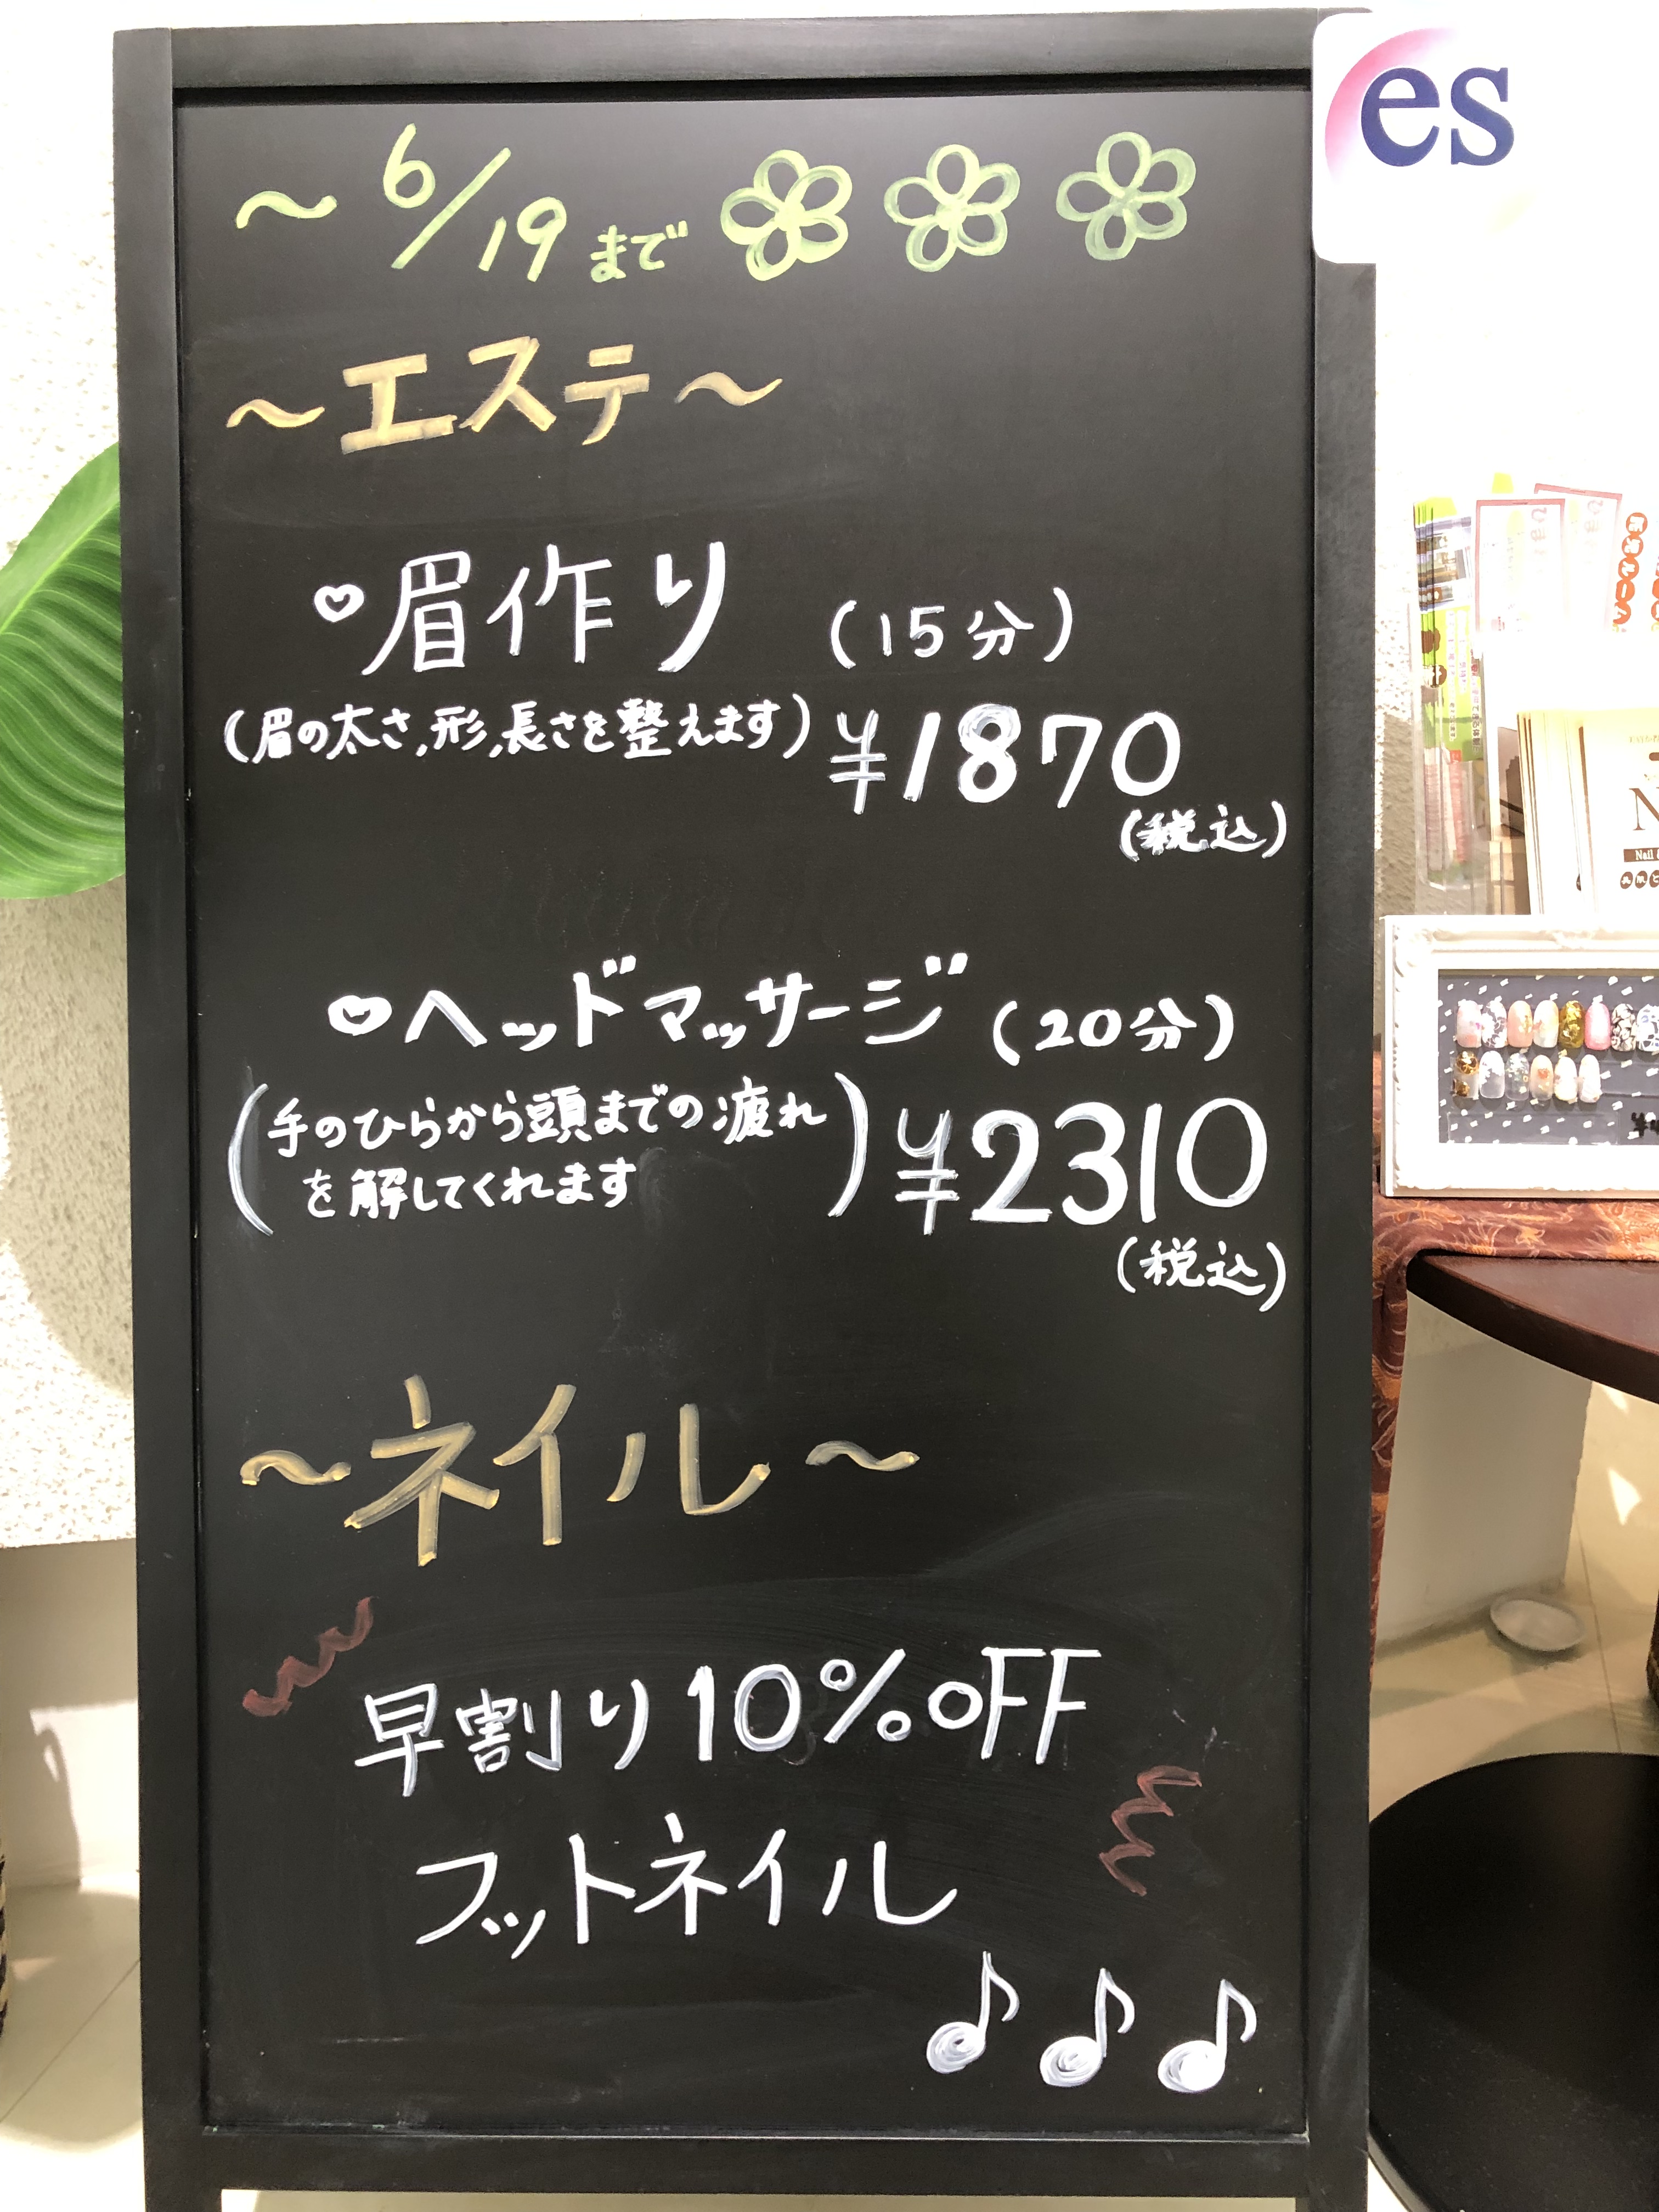 es
～6/19まで
～エステ～
♡眉作り (15分)
(眉の太さ,形,長さを整えます) ¥1870
(税込)
♡ヘッドマッサージ (20分)
(手のひらから頭までの疲れ
を解してくれます) ¥2310
(税込)
～ネイル～
早割り10%OFF
フットネイル
♪♪♪
N
Nail